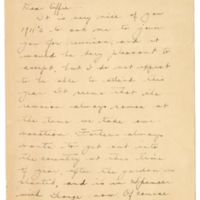 Dear Effie:
It is very nice of you
1911's to ask me to join
you for reunion, and it
would be very pleasant to
accept, but I do not expect
to be able to attend this
year. It seems that the
reunion always comes at
the time we take our
vacation. Father always
wants to get out into
the country at this time
of year, after the garden is
planted, and is in
with change now. Of course